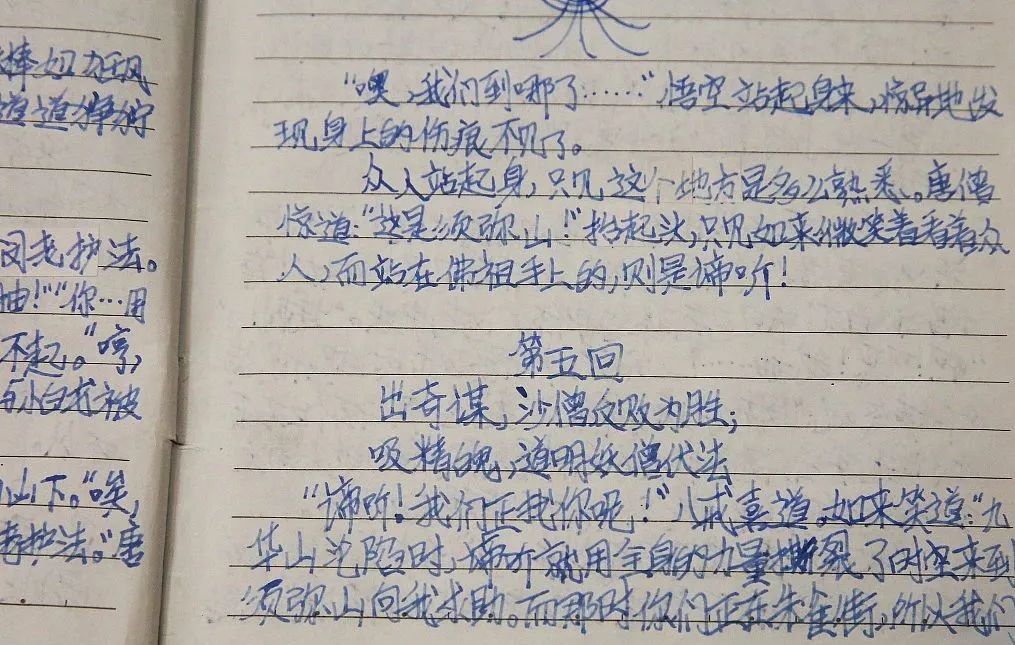 棒如狂风
道道狰狞
闵老护法。
抽！”“你…用
不起。”“哼，
与小白龙被
山下。“唉，
护法。”唐
“噢，我们到哪了……”悟空站起身来，惊异地发
现身上的伤痕不见了。
众人站起身，只见这个地方是多么熟悉。唐僧
惊道：“这是须弥山！”抬起头，只见如来微笑着看着众
人，而站在佛祖手上的，则是谛听！
第五回
出奇谋，沙僧反败为胜；
吸精魄，道明妖僧伏法
“谛听！我们正找你呢！”八戒喜道。如来笑道：“九
华山沦陷时，谛听就用全身的力量撕裂了时空来到
须弥山向我求助。而那时你们正在朱雀街，所以我们